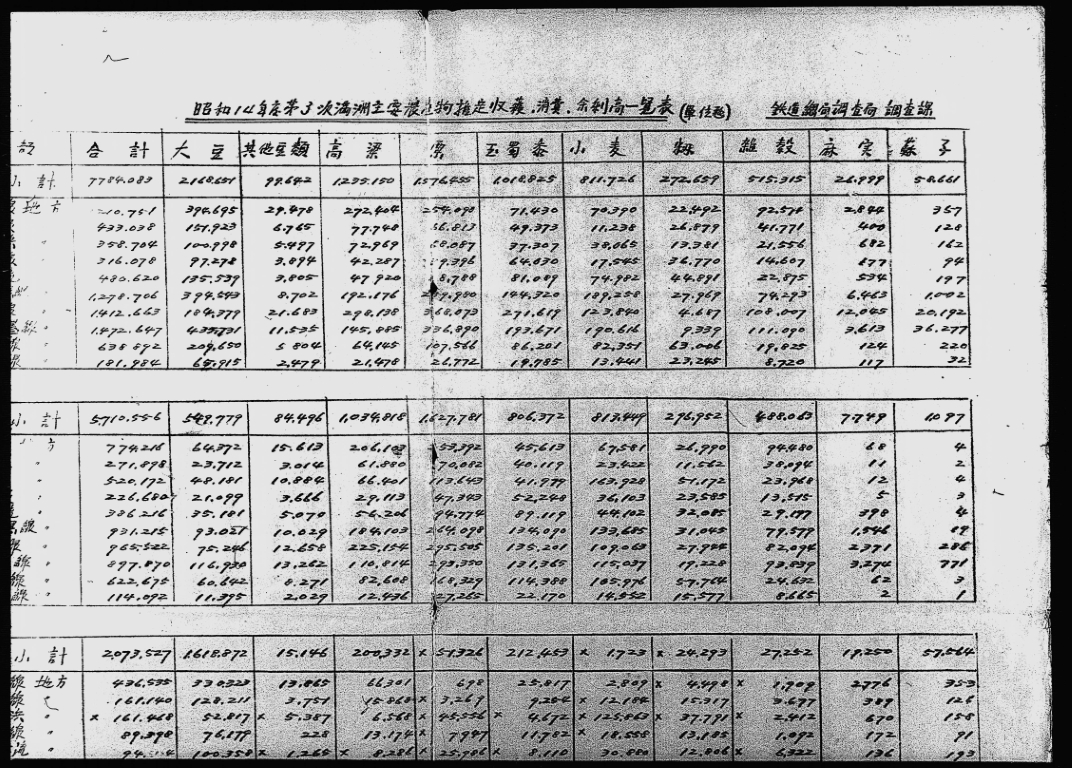 昭和14年度第3次満洲主要農産物推定収穫、消費、余剰高一覧表 (単位瓲) 鉄道總局調査局 調査課
合計 大豆 其他豆類 高粱 粟 玉蜀黍 小麦 籾 雑穀 麻実 蘇子
小計 7784.083 2168.651 99.642 1.235.150 1.576.455 1.018.825 811.726 272.659 515.315 26.999 58.661
地方 394.695 29.478 272.404 254.090 71.430 70.390 22.492 2.844 357
433.038 151.923 6.765 77.748 49.373 11.238 26.879 41.771 400 128
358.704 100.998 5.497 72.969 37.307 38.065 13.381 21.556 682 162
316.078 97.278 3.894 42.287 64.630 17.545 36.770 14.607 677 94
480.620 135.539 3.805 47.920 81.089 74.982 44.891 22.875 534 197
1.278.706 394.543 8.702 192.176 144.320 189.258 27.969 74.293 6.463 1.002
1.412.663 184.379 21.683 298.138 368.073 271.619 123.840 4.687 108.007 12.045 20.192
1.472.647 11.535 145.885 336.890 193.671 190.616 9.339 111.090 3.613 36.277
638.892 209.650 5.804 64.145 107.566 86.201 82.351 63.006 19.825 124 220
181.984 65.915 2.479 21.478 26.772 19.785 13.441 23.245 8.720 117 32
小計 5.710.556 549.779 84.496 1.034.818 1.627.781 806.372 813.449 296.952 488.063 7.749 1.097
方 774.216 64.372 15.613 45.613 67.581 26.990 94.480 68 4
271.898 23.712 3.014 61.880 70.082 40.119 23.422 11.562 38.094 11 2
520.172 48.181 10.884 66.401 113.643 41.979 163.928 51.172 23.968 12 4
226.680 21.099 3.666 29.113 47.343 52.248 36.103 23.585 13.515 5 3
336.216 35.181 5.070 56.206 94.774 89.119 44.102 32.085 29.177 398 4
931.215 93.021 10.029 184.103 264.098 134.090 133.685 31.045 79.577 1.546
965.522 75.246 12.658 225.154 295.505 135.201 109.063 27.944 82.094 2.391 286
897.870 116.930 13.262 110.814 293.350 131.365 115.037 19.228 93.839 3.274 771
622.675 60.642 8.271 82.608 168.329 114.388 105.976 57.764 24.632 62 3
114.092 11.395 2.029 12.436 27.265 22.170 14.552 15.577 8.665 2 1
小計 2.073.527 1.618.872 15.146 200.332 × 51.326 212.453 × 1.723 × 24.293 27.252 19.250 57.564
線地方 436.535 330.323 13.865 66.301 698 25.817 2.809 × 4.498 × 1.909 2.776 353
161.140 128.211 3.751 15.868 × 3.269 9.254 × 12.184 15.317 3.677 389 126
× 161.468 52.817 × 5.387 6.568 × 45.556 × 4.672 × 125.863 × 37.791 × 2.412 670 158
89.398 76.179 228 13.174 × 7.947 11.782 × 18.558 13.185 1.092 172 91
100.358 × 1.265 × 8.286 × 25.986 × 8.110 30.880 12.806 × 6.322 136 193